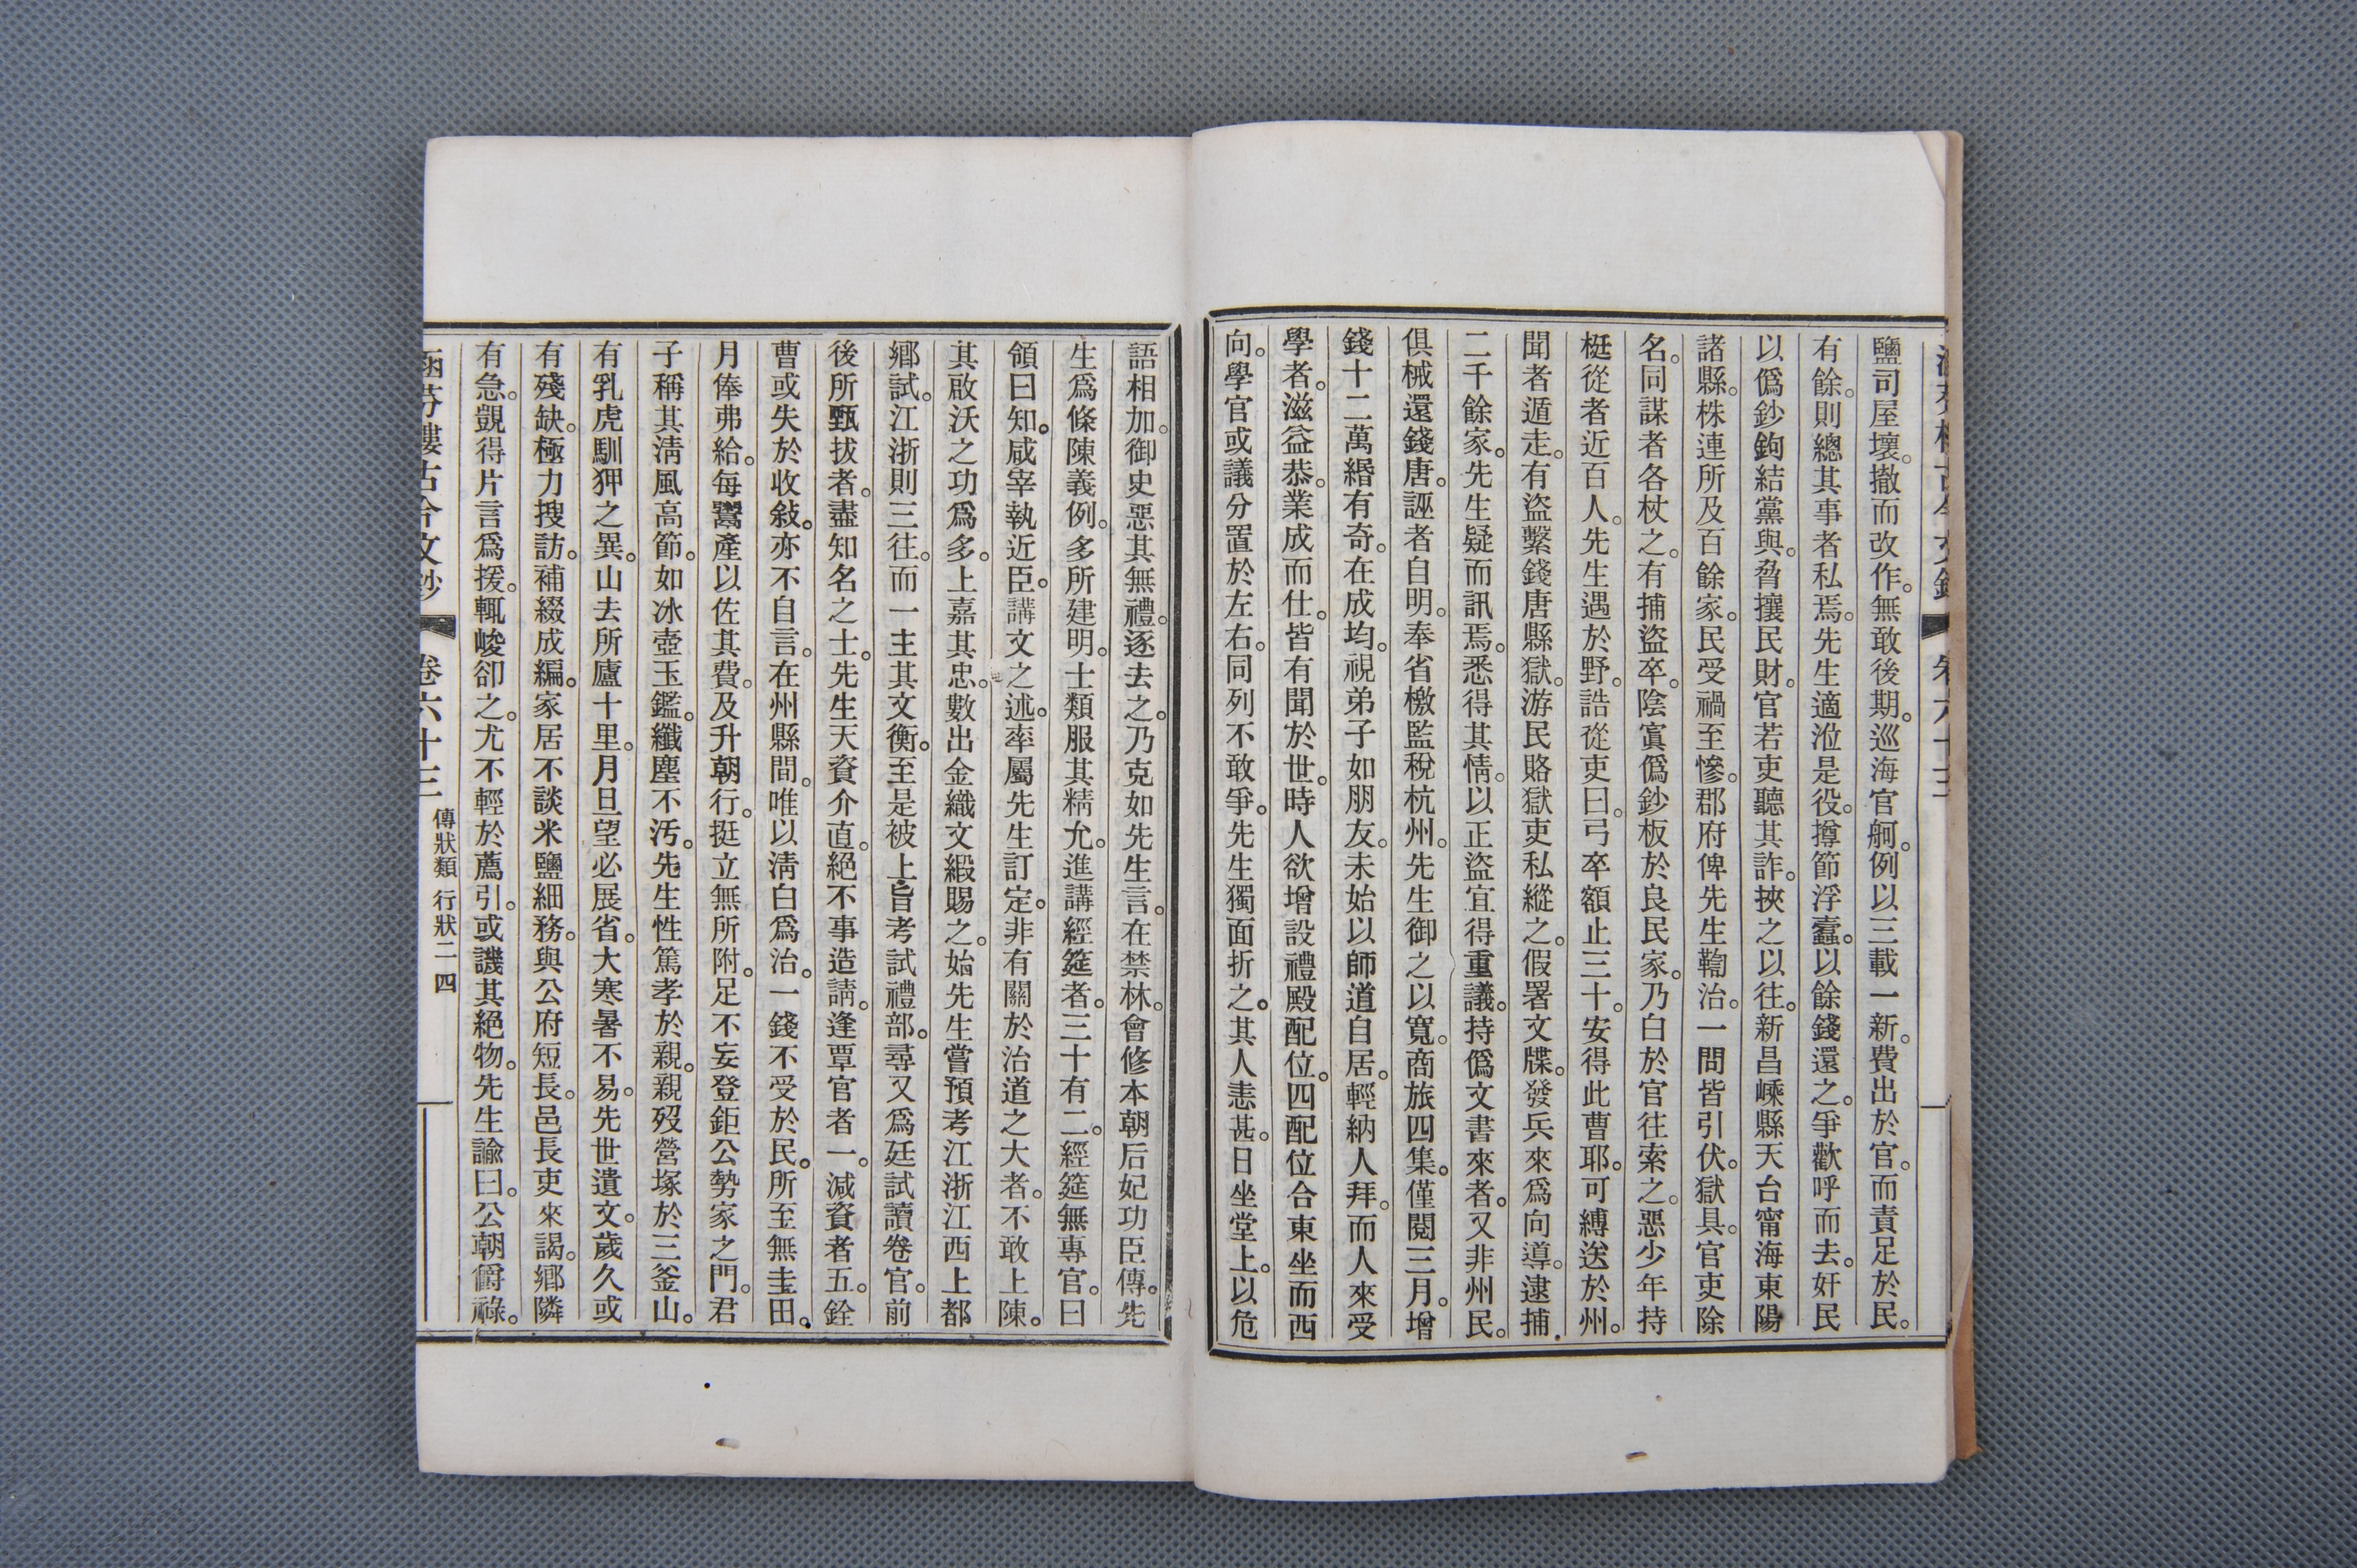 鹽司屋壞。撤而改作。無敢後期。巡海官舸。例以三載一新。費出於官。而責足於民。
有餘。則總其事者私焉。先生適涖是役。撙節浮蠹。以餘錢還之。爭歡呼而去。奸民
以僞鈔鉤結黨與。脅攘民財。官若吏聽其詐。挾之以往。新昌嵊縣天台甯海東陽
諸縣。株連所及百餘家。民受禍至慘。郡府俾先生鞫治。一問皆引伏。獄具。官吏除
名。同謀者各杖之。有捕盜卒。陰寘僞鈔板於良民家。乃白於官往索之。惡少年持
梃從者近百人。先生遇於野。誥從吏曰。弓卒額止三十。安得此曹耶。可縛送於州。
聞者遁走。有盜繫錢唐縣獄。游民賂獄吏私縱之。假署文牒。發兵來爲向導。逮捕
二千餘家。先生疑而訊焉。悉得其情。以正盜宜得重議。持僞文書來者。又非州民。
俱械還錢唐。誣者自明。奉省檄監稅杭州。先生御之以寬。商旅四集。僅閱三月。增
錢十二萬緡有奇。在成均。視弟子如朋友。未始以師道自居。輕納人拜。而人來受
學者。滋益恭。業成而仕。皆有聞於世。時人欲增設禮殿配位。四配位合東坐而西
向。學官或議分置於左右。同列不敢爭。先生獨面折之。其人恚甚。日坐堂上。以危
語相加。御史惡其無禮。逐去之。乃克如先生言。在禁林。會修本朝后妃功臣傳。先
生爲條陳義例。多所建明。士類服其精允。進講經筵者。三十有二。經筵無專官。曰
領曰知。咸宰執近臣。講文之述。率屬先生訂定。非有關於治道之大者。不敢上陳。
其啟沃之功爲多。上嘉其忠。數出金織文緞賜之。始先生嘗預考江浙江西上都
鄉試。江浙則三往。而一主其文衡。至是被上旨考試禮部。尋又爲廷試讀卷官。前
後所甄拔者。盡知名之士。先生天資介直。絕不事造請。逢覃官者一。減資者五。銓
曹或失於收敍。亦不自言。在州縣間。唯以淸白爲治。一錢不受於民。所至無圭田。
月俸弗給。每鬻產以佐其費。及升朝行。挺立無所附。足不妄登鉅公勢家之門。君
子稱其淸風高節。如冰壺玉鑑。纖塵不汚。先生性篤孝於親。親歿營塚於三釜山。
有乳虎馴狎之異。山去所廬十里。月旦望必展省。大寒暑不易。先世遺文。歲久或
有殘缺。極力搜訪。補綴成編。家居不談米鹽細務。與公府短長。邑長吏來謁。鄉隣
有急。覬得片言爲援。輒峻卻之。尤不輕於薦引。或譏其絕物。先生諭曰。公朝爵祿。
涵芬樓古今文鈔 卷六十三 傳狀類 行狀二 四